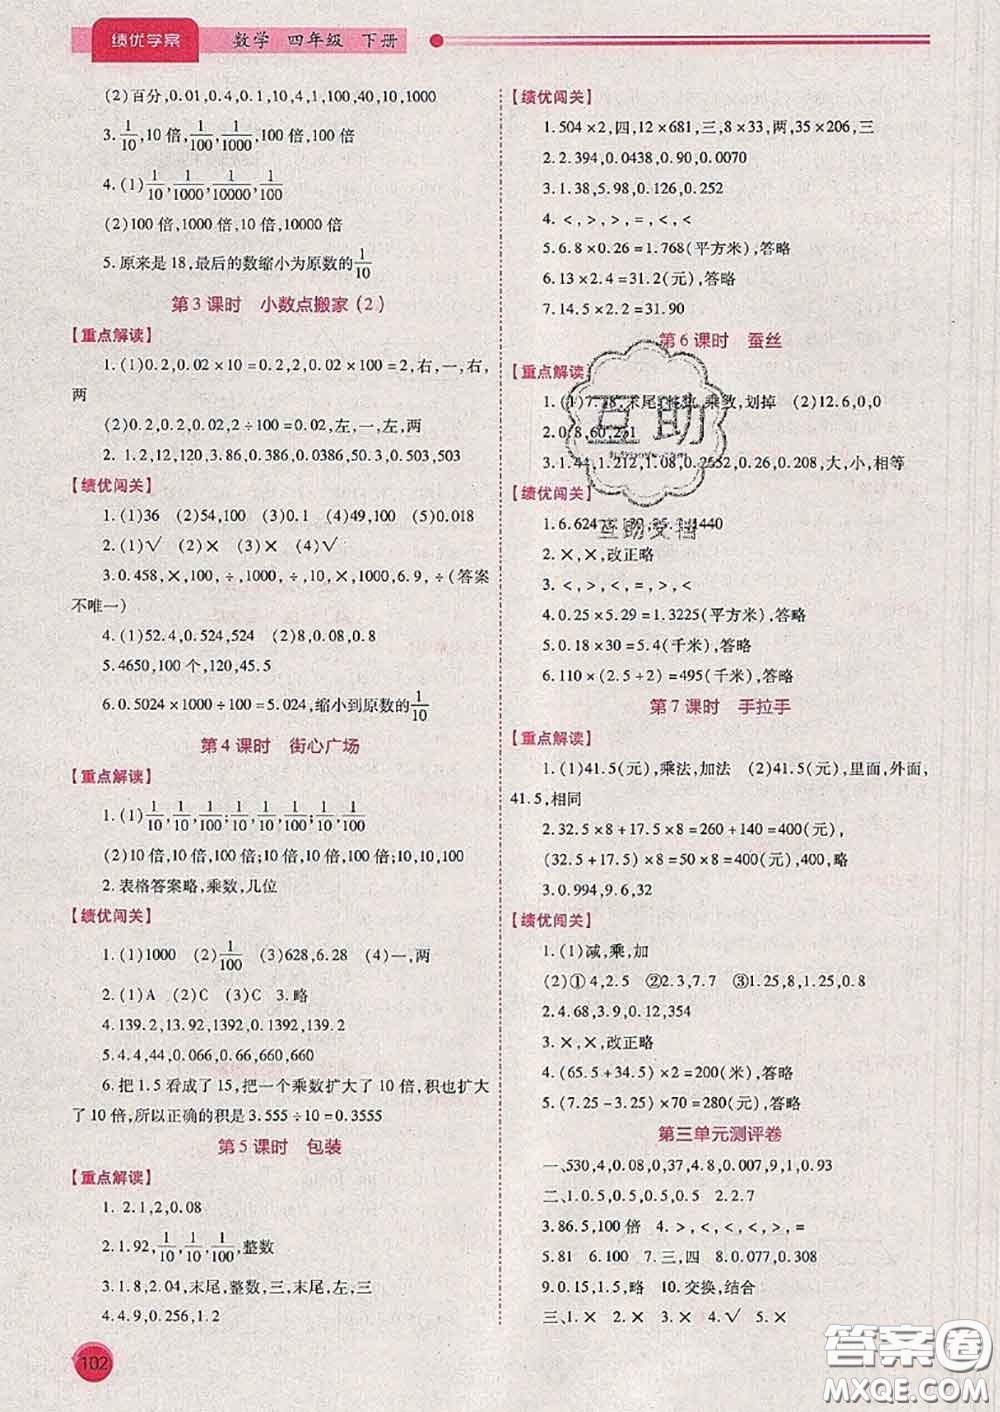 绩优学案 数学 四年级 下册
(2)百分,0.01,0.4,0.1,10,4,1,100,40,10,1000
3.1/10,10倍,1/100,1/1000,100倍,100倍
4.(1)1/10,1/1000,1/10000,1/100
(2)100倍,1000倍,10倍,10000倍
5.原来是18,最后的数缩小为原数的1/10
第3课时 小数点搬家(2)
【重点解读】
1.(1)0.2,0.02×10=0.2,0.02×100=2,右,一,右,
两
(2)0.2,0.02,2÷100=0.02,左,一,左,两
2.1.2,12,120,3.86,0.386,0.0386,50.3,0.503,503
【绩优闯关】
1.(1)36 (2)54,100 (3)0.1 (4)49,100 (5)0.018
2.(1)√ (2)× (3)× (4)√
3.0.458,×,100,÷,1000,÷,10,×,1000,6.9,÷(答案
不唯一)
4.(1)52.4,0.524,524 (2)8,0.08,0.8
5.4650,100个,120,45.5
6.0.5024×1000÷100=5.024,缩小到原数的1/10
第4课时 街心广场
【重点解读】
1.(1)1/10,1/10,1/100;1/10,1/10,1/100;1/10,1/100
(2)10倍,10倍,100倍;10倍,10倍,100倍;10,10,100
2.表格答案略,乘数,几位
【绩优闯关】
1.(1)1000 (2)1/100 (3)628,6.28 (4)一,两
2.(1)A (2)C (3)C 3.略
4.139.2,13.92,1392,0.1392,139.2
5.4.4,44,0.066,0.66,660,660
6.把1.5看成了15,把一个乘数扩大了10倍,积也扩大
了10倍,所以正确的积是3.555÷10=0.3555
第5课时 包装
【重点解读】
1.2.1,2,0.08
2.1.92,1/10,1/10,1/100,整数
3.1.8,2.04,末尾,整数,三,末尾,左,三
4.4.9,0.256,1.2
102
【绩优闯关】
1.504×2,四,12×681,三,8×33,两,35×206,三
2.2.394,0.0438,0.90,0.0070
3.1.38,5.98,0.126,0.252
4.<,>,>,=,<,<
5.6.8×0.26=1.768(平方米),答略
6.13×2.4=31.2(元),答略
7.14.5×2.2=31.90
第6课时 蚕丝
【重点解读】
1.(1)7.28,末尾,乘数,划掉 (2)12.6,0,0
2.0.8,60,251
3.1.44,1.212,1.08,0.2552,0.26,0.208,大,小,相等
【绩优闯关】
1.6.624 1440
2.×,×,改正略
3.<,>,<,>,<
4.0.25×5.29=1.3225(平方米),答略
5.0.18×30=5.4(千米),答略
6.110×(2.5+2)=495(千米),答略
第7课时 手拉手
【重点解读】
1.(1)41.5(元),乘法,加法 (2)41.5(元),里面,外面,
41.5,相同
2.32.5×8+17.5×8=260+140=400(元),
(32.5+17.5)×8=50×8=400(元),400,略
3.0.994,9.6,32
【绩优闯关】
1.(1)减,乘,加
(2)①4,2.5 ②2.3,7.7 ③1.25,8,1.25,0.8
2.4.68,3.9,0.12,354
3.×,×,改正略
4.(65.5+34.5)×2=200(米),答略
5.(7.25-3.25)×70=280(元),答略
第三单元测评卷
一、530,4,0.08,0.37,4.8,4.8,0.007,9,1,0.93
二、1.0.5,0.5,0.5,0.5 2.2.7
3.86.5,100倍 4.>,<,<,<,>,=
5.81 6.100 7.三,四 8.0.077,0.308
9.0.15,1.5,略 10.交换,结合
三、1.× 2.× 3.× 4.√ 5.×
互助
互助文档
答案圈
MXQE.COM